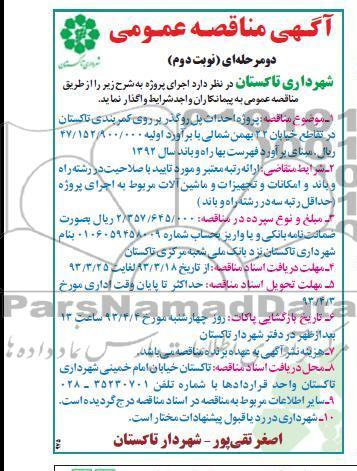 آگـهی مناقصـه عمـومی
شهرداری تاکستان
دو مرحله‌ای (نوبت دوم)
شهرداری تاکستان در نظر دارد اجرای پروژه به شرح زیر را از طریق
مناقصه عمومی به پیمانکاران واجد شرایط واگذار نماید.
۱ـ موضوع مناقصه: پروژه احداث پل روگذر بر روی کمربندی تاکستان
در تقاطع خیابان ۲۲ بهمن شمالی با برآورد اولیه ۲۷/۱۵۲/۹۰۰/۰۰۰
ریال، مبنای برآورد فهرست بهاء راه و باند سال ۱۳۹۲
۲ـ شرایط متقاضی: ارائه رتبه معتبر و مورد تایید با صلاحیت در رشته راه
و باند و امکانات و تجهیزات و ماشین آلات مربوط به اجرای پروژه
(حداقل رتبه سه در رشته راه و باند)
۳ـ مبلغ و نوع سپرده در مناقصه: ۲/۳۵۷/۶۴۵/۰۰۰ ریال بصورت
ضمانت نامه بانکی و یا واریز بحساب شماره ۰۱۰۶۰۵۹۴۵۸۰۰۹ بنام
شهرداری تاکستان نزد بانک ملی شعبه مرکزی تاکستان
۴ـ مهلت دریافت اسناد مناقصه: از تاریخ ۹۳/۳/۱۸ لغایت ۹۳/۳/۲۵
۵ـ مهلت تحویل اسناد مناقصه: حداکثر تا پایان وقت اداری مورخ
۹۳/۴/۳
۶ـ تاریخ بازگشایی پاکات: روز چهارشنبه مورخ ۹۳/۴/۴ ساعت ۱۳
بعدازظهر در دفتر شهردار تاکستان
۷ـ هزینه نشر آگهی به عهده برنده مناقصه می‌باشد.
۸ـ محل دریافت اسناد مناقصه: تاکستان خیابان امام خمینی شهرداری
تاکستان واحد قراردادها با شماره تلفن ۳۵۲۳۰۷۰۱ - ۰۲۸
۹ـ سایر اطلاعات مربوط به مناقصه در اسناد مناقصه درج گردیده است.
۱۰ـ شهرداری در رد یا قبول پیشنهادات مختار است.
اصغر تقی‌پور - شهردار تاکستان
ParsNamadData